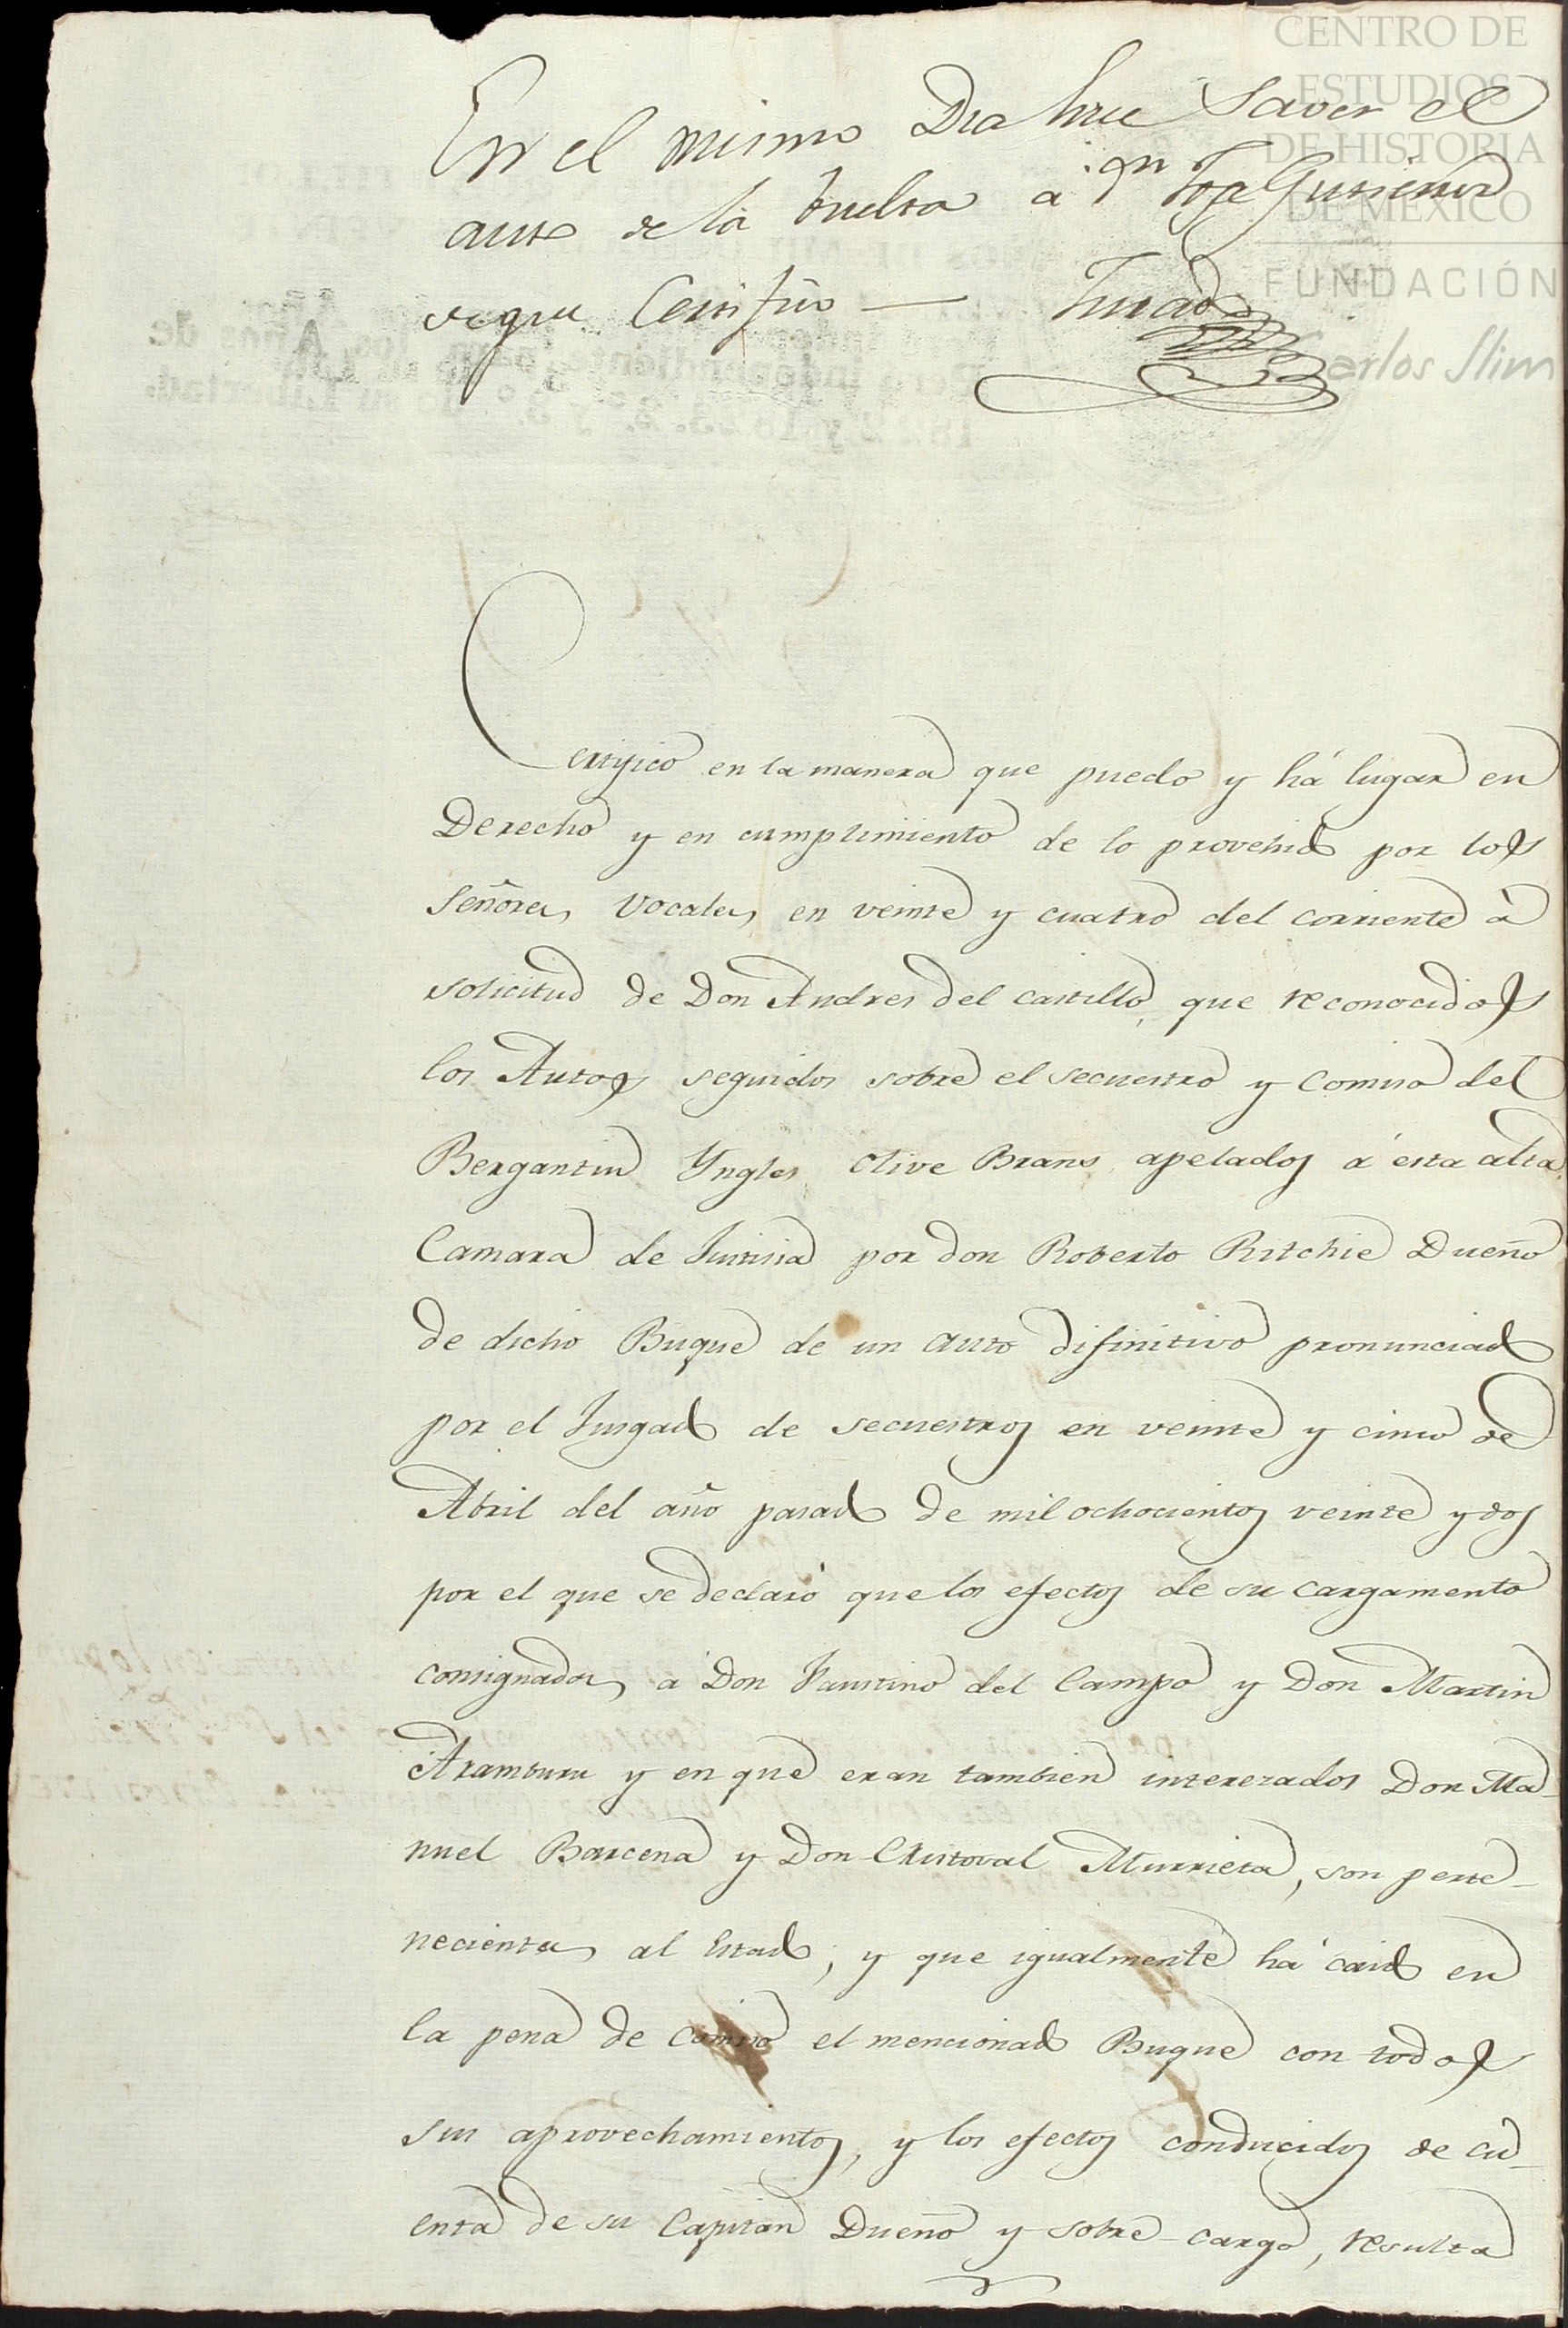 En el mismo Dia hice Saver el
auto de la buelta a dn Jose Gutierrez
de que Certifico — Jurado
Certifico en la manera que puedo y há lugar en
Derecho y en cumplimiento de lo provehido por los
Señores Vocales en veinte y cuatro del corriente à
solicitud de Don Andres del Castillo, que reconocidos
los Autos seguidos sobre el secuestro y Comiso del
Bergantin Yngles Olive Brans apelados á esta alta
Camara de Justisia por don Roberto Ritchie Dueño
de dicho Buque de un auto difinitivo pronunciado
por el Jusgado de secuestros en veinte y cinco de
Abril del año pasado de mil ochocientos veinte y dos
por el que se declaró que los efectos de su cargamento
consignados á Don Faustino del Campo y Don Martin
Aramburu y en que eran tambien interezados Don Ma-
nuel Barcena y Don Christoval Murrieta, son perte-
necientes al Estado, y que igualmente há caido en
la pena de comiso el mencionado Buque con todos
sus aprovechamientos, y los efectos conducidos de cu-
enta de su Capitan Dueño y sobre-cargo, resulta
CENTRO DE
ESTUDIOS
DE HISTORIA
DE MÉXICO
FUNDACIÓN
Carlos Slim